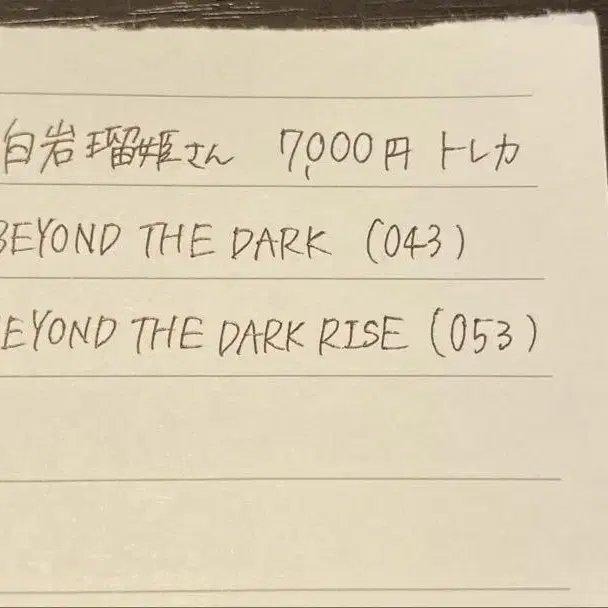 白岩瑠姫さん 7,000円 トレカ
BEYOND THE DARK (043)
BEYOND THE DARK RISE (053)